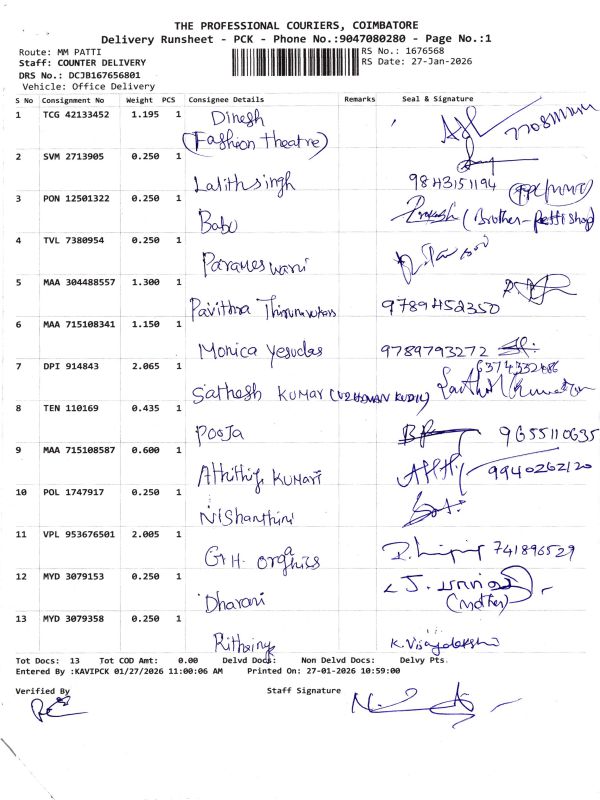 THE PROFESSIONAL COURIERS, COIMBATORE
Delivery Runsheet - PCK - Phone No.:9047080280 - Page No.:1
Route: MM PATTI
RS No.: 1676568
Staff: COUNTER DELIVERY
RS Date: 27-Jan-2026
DRS No.: DCJB167656801
Vehicle: Office Delivery
S No Consignment No Weight PCS Consignee Details Remarks Seal & Signature
1 TCG 42133452 1.195 1 Dinesh
(Fashion theatre)
2 SVM 2713905 0.250 1
Lalithsingh 9843151194
3 PON 12501322 0.250 1
Babu Prakash (Brother-Pettishop)
4 TVL 7380954 0.250 1
Parameswari
5 MAA 304488557 1.300 1
Pavithra 9789452350
6 MAA 715108341 1.150 1
Monica Yesudas 9789793272
7 DPI 914843 2.065 1 6374332486
Sathesh Kumar
8 TEN 110169 0.435 1
Pooja 9655110635
9 MAA 715108587 0.600 1
Kumari 9940262120
10 POL 1747917 0.250 1
Nishanthini
11 VPL 953676501 2.005 1
Orgahics 741896529
12 MYD 3079153 0.250 1
Dharani (mother)
13 MYD 3079358 0.250 1
K. Vijayalakshmi
Tot Docs: 13 Tot COD Amt: 0.00 Delvd Docs: Non Delvd Docs: Delvy Pts.
Entered By :KAVIPCK 01/27/2026 11:00:06 AM Printed On: 27-01-2026 10:59:00
Verified By Staff Signature